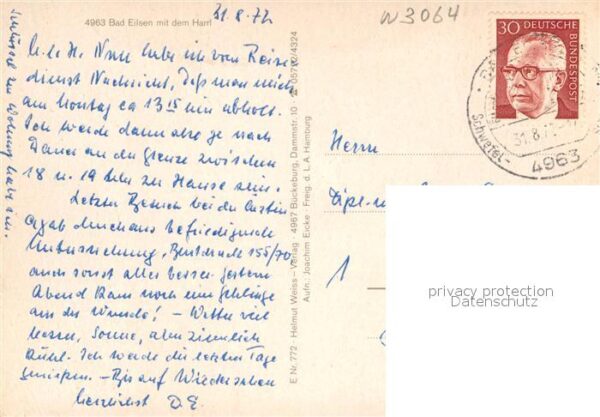 4963 Bad Eilsen mit dem Harrl
31.8.72
W3064
30 DEUTSCHE
BUNDESPOST
31.8.
4963
Schwefel-
Nun habe ich vom Reise
dienst Nachricht, daß man mich
am Montag ca 13 15 hier abholt.
Ich werde dann also je nach
Dauer an der Grenze zwischen
18 u. 19 Uhr zu Hause sein.
Letzter Besuch bei der Ärztin
ergab durchaus befriedigende
Untersuchung, Blutdruck 155/70,
auch sonst alles besser. Gestern
Abend kam noch eine
aus der Wunde! – Wetter viel
Sonne, aber ziemlich
kühl. Ich werde die letzten Tage
genießen. – Bis auf Wiedersehen
herzlichst D.E.
Schlüssel zur Wohnung habe ich.
E Nr. 772 Helmut Weiss-Verlag · 4967 Bückeburg, Dammstr. 10
Aufn. Joachim Eicke Freig. d. L.A. Hamburg
Herrn
1
privacy protection
Datenschutz